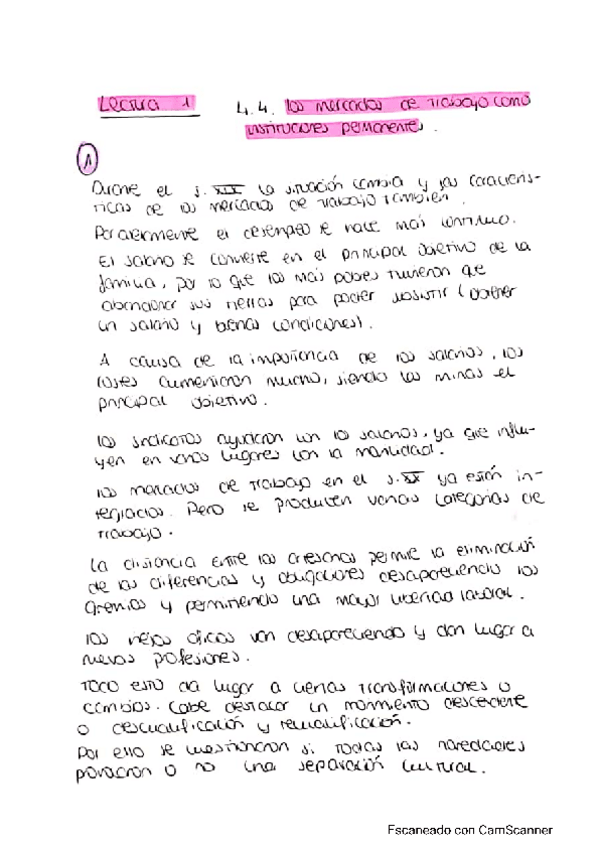 Lectura 1
4.4. los mercados de trabajo como
instituciones permanentes.
1
Durante el s. XIX la situación cambia y las caracterís-
ticas de los mercados de trabajo también.
Paralelamente el desempleo se hace más continuo.
El salario se convierte en el principal objetivo de la
familia, por lo que los más pobres tuvieron que
abandonar sus tierras para poder subsistir (obtener
un salario y buenas condiciones).
A causa de la importancia de los salarios, los
costes aumentaron mucho, siendo las minas el
principal objetivo.
los sindicatos ayudaron con los salarios, ya que influ-
yen en varios lugares con la
los mercados de trabajo en el s. XX ya están in-
tegrados. Pero se producen varias categorías de
trabajo.
La distancia entre los artesanos permite la eliminación
de las diferencias y obligaciones desapareciendo los
gremios y permitiendo una mayor libertad laboral.
los viejos oficios van desapareciendo y dan lugar a
nuevas profesiones.
Todo esto da lugar a ciertas transformaciones o
cambios. Cabe destacar un movimiento descendente
o descualificación y recualificación.
Por ello se cuestionaron si todas las novedades
provocaron o no una separación cultural.
Escaneado con CamScanner